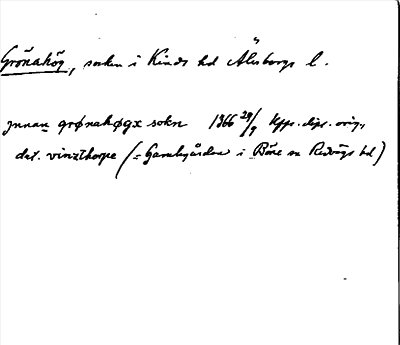 Grönahög, socken i Kinds hd Älvsborgs l.
jnnan grønahøgx sokn 1366 29/9 kpps. dipl. orig.,
dat. vinzthorpe (= Gamlegården i Böne sn Redvägs hd)